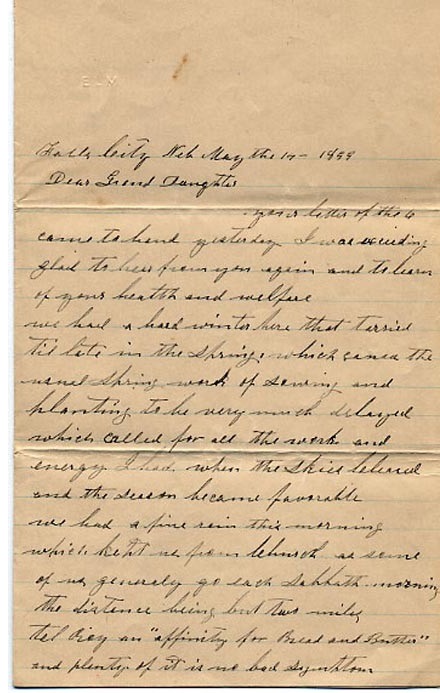 ELM
Falls City Neb May the 1 - 1899
Dear Grand Daughter
your letter of the 6
came to hand yesterday I was
glad to hear from you again and to learn
of your health and welfare
we had a hard winter here that tarried
til late in the spring, which the
usual Spring work of sowing and
planting to be very much delayed
which called for all the work and
energy I had, when the skies cleared
and the season became favorable
we had a fine rain this morning
which kept us from Church as some
of us generaly go each Sabbath morning
the distance being but two miles
an "affinity for Bread and Butter"
and plenty of it is no bad symptom